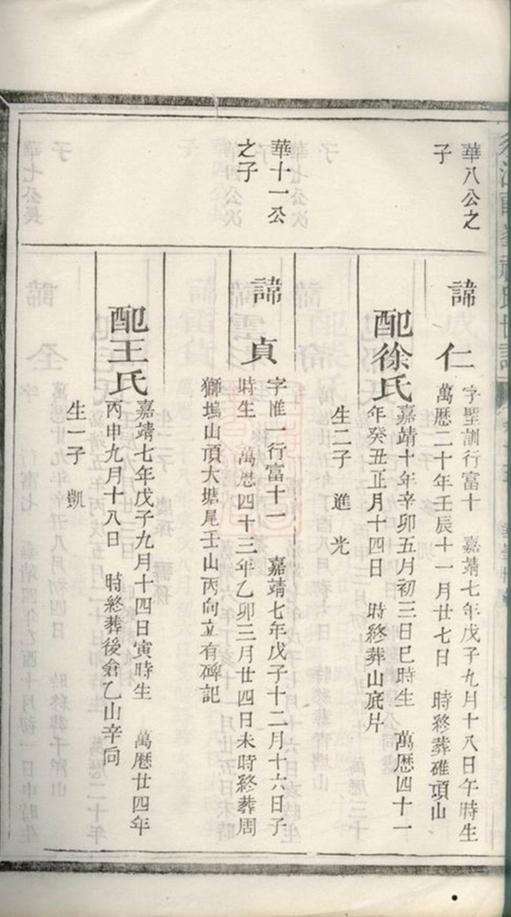 華八公之
子
諱仁
字聖訓行富十 嘉靖七年戊子九月十八日午時生
萬曆二十年壬辰十一月廿七日 時終葬碓頭山
配徐氏
嘉靖十年辛卯五月初三日巳時生 萬曆四十一
年癸丑正月十四日 時終葬山底片
生二子 進 光
華十一公
之子
諱貞
字惟一行富十二 嘉靖七年戊子十二月十六日子
時生 萬曆四十三年乙卯三月廿四日未時終葬周
獅塢山頂大塘尾壬山丙向立有碑記
配王氏
嘉靖七年戊子九月十四日寅時生 萬曆廿四年
丙申九月十八日 時終葬後倉乙山辛向
生一子 凱